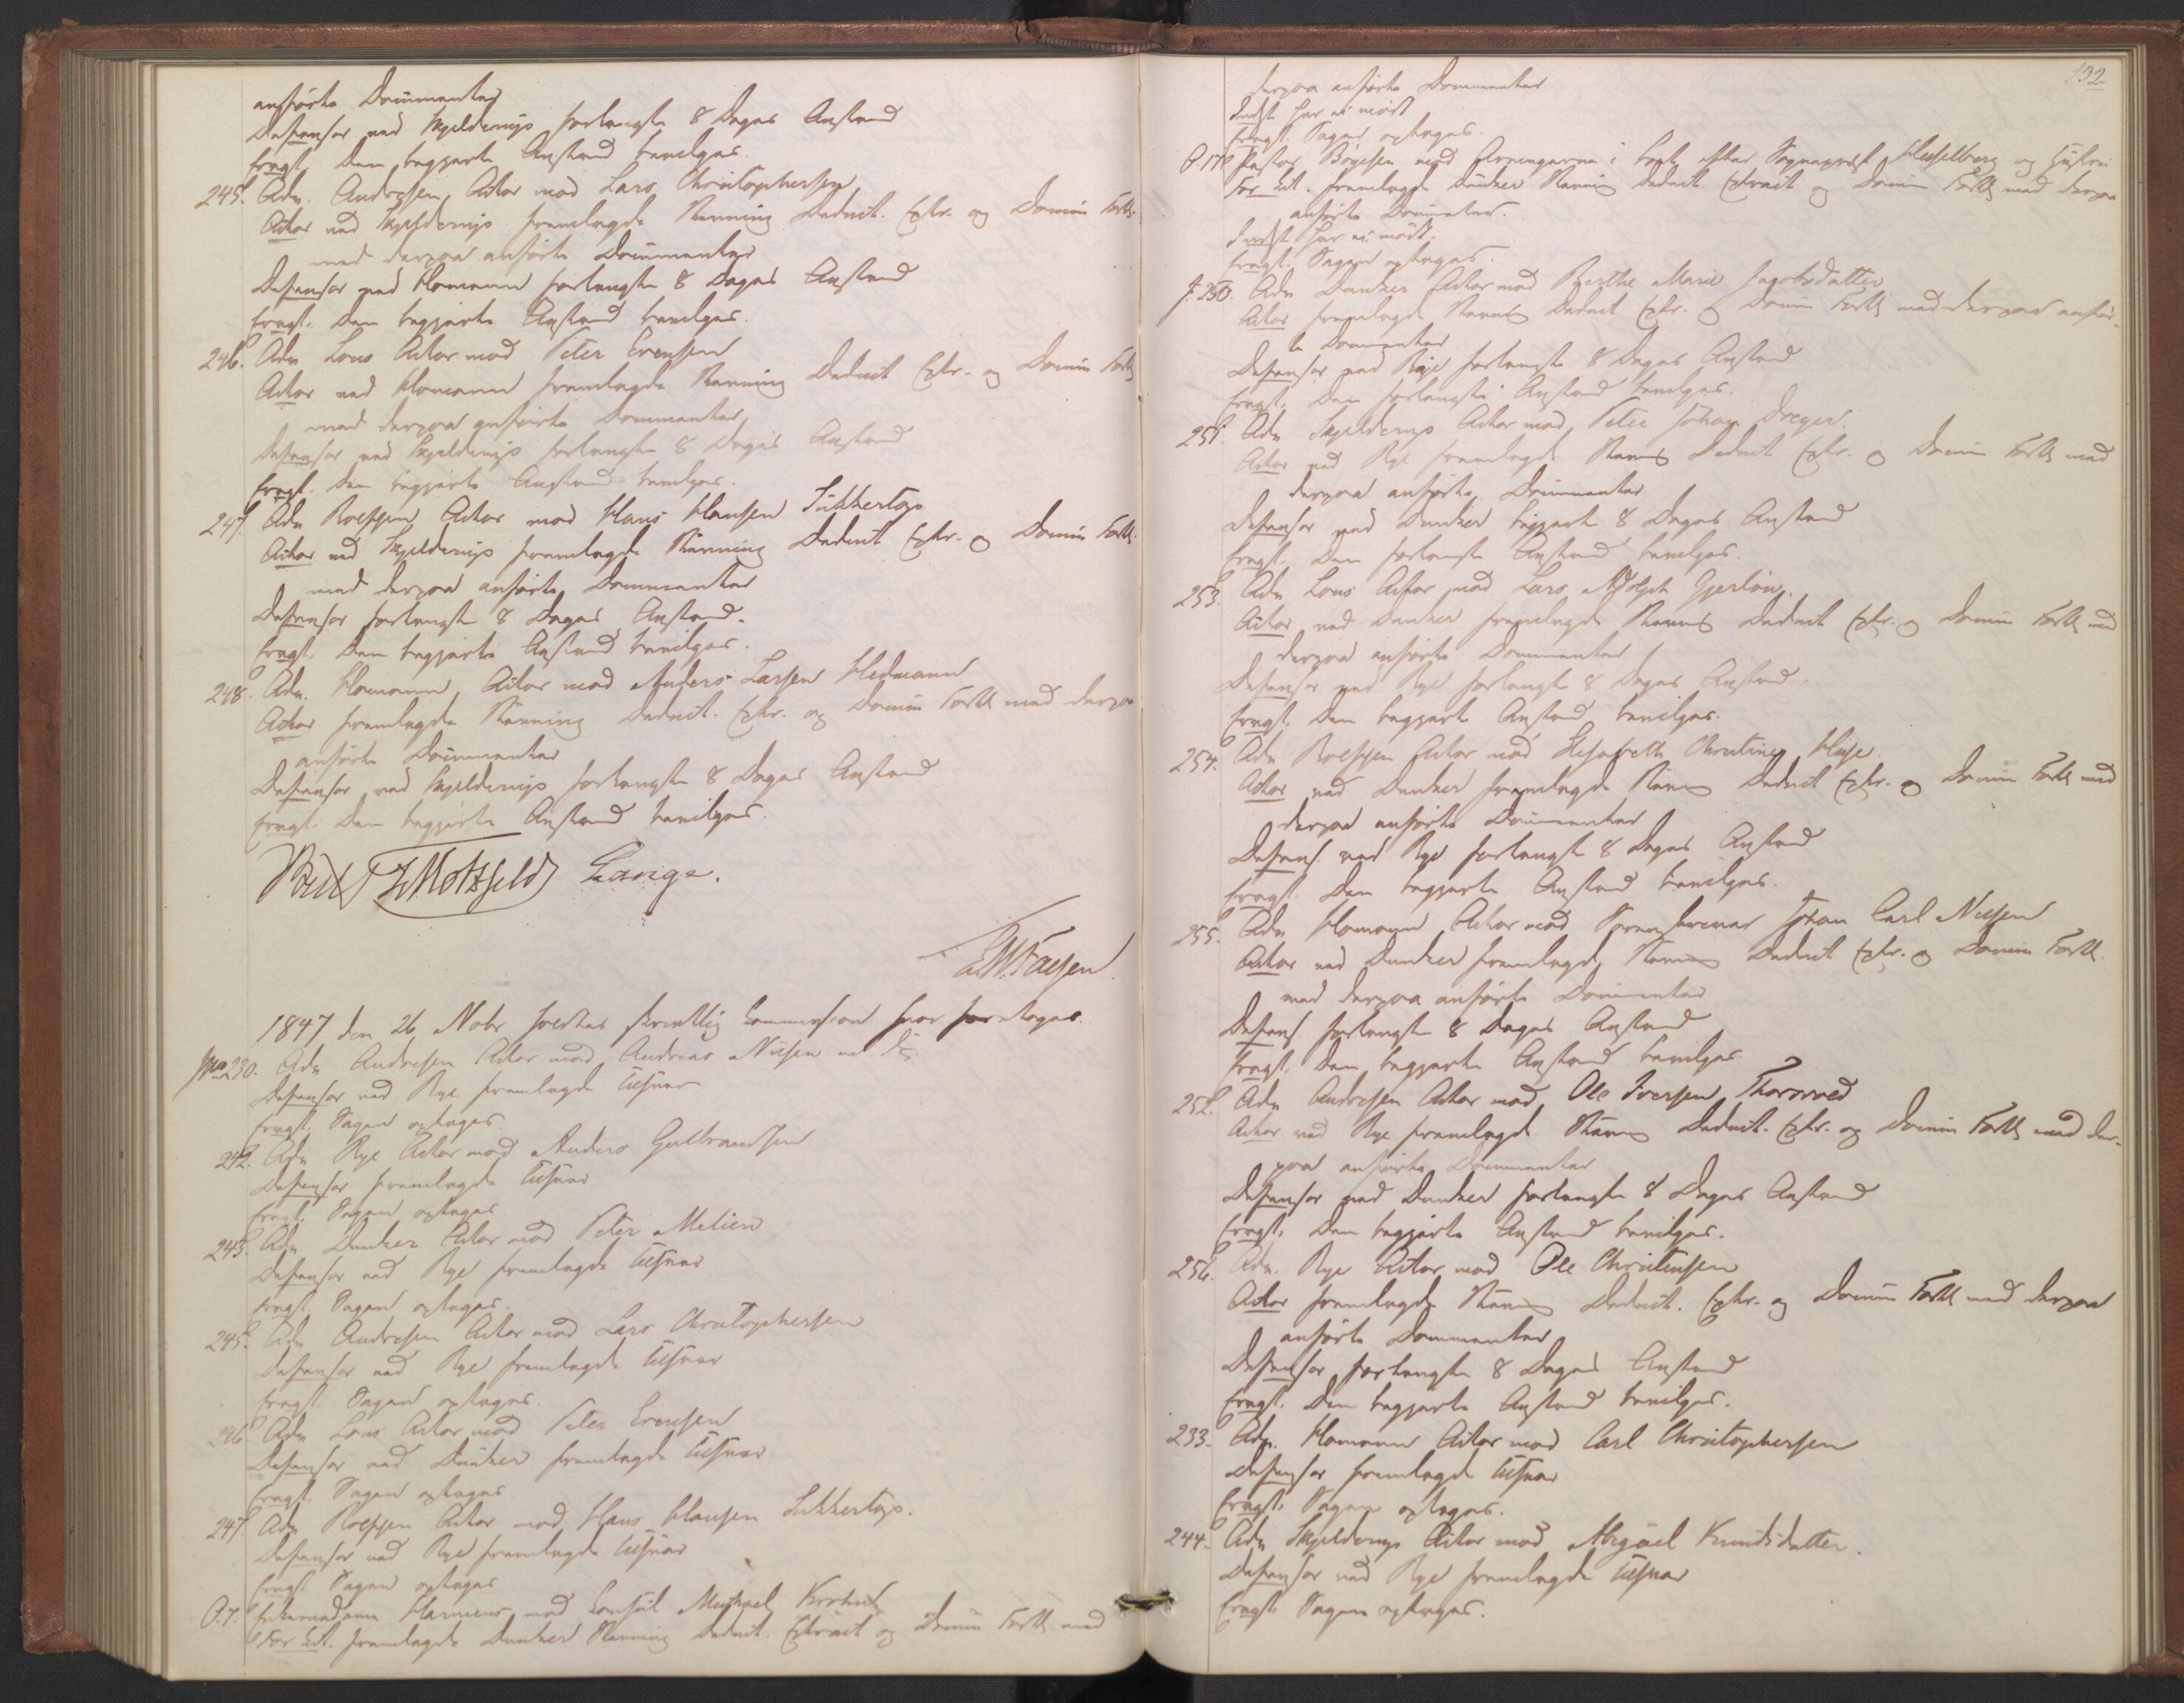 anførte Documenter
Defensor ved Skjelderup forlangte 8 Dages Anstand
Eragt. Den begjærte Anstand bevilges.
245. Adv. Andresen Actor mod Lars Christophersen
Actor ved Skjelderup fremlagde Stævning Deduct. Extr. og Domm Forts.
med derpaa anførte Documenter
Defensor ved Homann forlangte 8 Dages Anstand
Eragt. Den begjærte Anstand bevilges.
246. Adv Lous Actor mod Peter Evensen
Actor ved Homann fremlagde Stævning Deduct Extr. og Domm Forts
med derpaa anførte Documenter
Defensor ved Skjelderup forlangte 8 Dages Anstand
Eragt. Den begjærte Anstand bevilges.
247. Adv Rolfsen Actor mod Hans Hansen Sukkertop
Actor ved Skjelderup fremlagde Stævning Deduct Extr. og Domm Forts.
med derpaa anførte Documenter
Defensor forlangte 8 Dages Anstand.
Eragt. Den begjærte Anstand bevilges.
248. Adv. Homann Actor mod Anders Larsen Hedmann
Actor fremlagde Stævning Deduct. Extr. og Domm Forts med derpaa
anførte Documenter
Defensor ved Skjelderup forlangte 8 Dages Anstand
Eragt. Den begjærte Anstand bevilges.
Motzfeldt Lange.
1847 den 26 Nobr holdtes skriftlig Commission hvor foretoges.
230. Adv Andresen Actor mod Andreas Nilsen
Defensor ved Rye fremlagde Tilsvar
Eragt. Sagen optages.
242. Adv Rye Actor mod Anders Gulbrandsen
Defensor fremlagde Tilsvar
Eragt. Sagen optages
243. Adv Dunker Actor mod Peter Melien
Defensor ved Rye fremlagde Tilsvar
Eragt. Sagen optages.
245. Adv Andresen Actor mod Lars Christophersen
Defensor ved Rye fremlagde Tilsvar
Eragt. Sagen optages.
246. Adv Lous Actor mod Peter Evensen
Defensor ved Dunker fremlagde Tilsvar
Eragt. Sagen optages
247. Adv Rolfsen Actor mod Hans Hansen Sukkertop.
Defensor ved Rye fremlagde Tilsvar
Eragt. Sagen optages
O.7. Enkemadame mod Consul Michael Krohn
For Cit. fremlagde Dunker Stævning Deduct. Extract og Domm Forts med
132
derpaa anførte Documenter
Indst har ei mødt
Eragt. Sagen optages.
Pastor Bøyesen mod Arvingerne i Boet efter Sognepræst Hesselberg og Hustru
For Cit. fremlagde Dunker Stævning Deduct Extract og Domm Forts med derpaa
anførte Documenter.
Indst har ei mødt.
Eragt. Sagen optages.
250. Adv Dunker Actor mod Berthe Marie Jacobsdatter
Actor fremlagde Stævning Deduct Extr. og Domm Forts med derpaa anfør-
te Documenter
Defensor ved Rye forlangte 8 Dages Anstand
Eragt. Den forlangte Anstand bevilges.
251. Adv Skjelderup Actor mod Peter Johan Dreyer.
Actor ved Rye fremlagde Stævning Deduct Extr. og Domm Forts med
derpaa anførte Documenter
Defensor ved Dunker begjærte 8 Dages Anstand
Eragt. Den forlangte Anstand bevilges.
253. Adv Lous Actor mod Lars Adolph Gjerløw.
Actor ved Dunker fremlagde Stævning Deduct Extr. og Domm Forts med
derpaa anførte Documenter
Defensor ved Rye forlangte 8 Dages Anstand.
Eragt. Den begjærte Anstand bevilges.
254. Adv Rolfsen Actor mod Elisabeth Christine
Actor ved Dunker fremlagde Stævning Deduct Extr. og Domm Forts med
derpaa anførte Documenter
Defens. ved Rye forlangte 8 Dages Anstand
Eragt. Den begjærte Anstand bevilges.
255. Adv Homann Actor mod Johan Carl Nilsen
Actor ved Dunker fremlagde Stævning Deduct Extr. og Domm Forts.
med derpaa anførte Documenter
Defens. forlangte 8 Dages Anstand
Eragt. Den begjærte Anstand bevilges
252. Adv Andresen Actor mod Ole Iversen
Actor ved Rye fremlagde Stævning Deduct. Extr. og Domm Forts med der-
paa anførte Documenter
Defensor ved Dunker forlangte 8 Dages Anstand
Eragt. Den begjærte Anstand bevilges.
256. Adv. Rye Actor mod Ole Christensen
Actor fremlagde Stævning Deduct. Extr. og Domm Forts med derpaa
anførte Documenter
Defensor forlangte 8 Dages Anstand
Eragt. Den begjærte Anstand bevilges.
233. Adv. Homann Actor mod Carl Christophersen
Defensor fremlagde Tilsvar
Eragt. Sagen optages.
244. Adv Skjelderup Actor mod Abigael Knudsdatter.
Defensor ved Rye fremlagde Tilsvar
Eragt. Sagen optages.